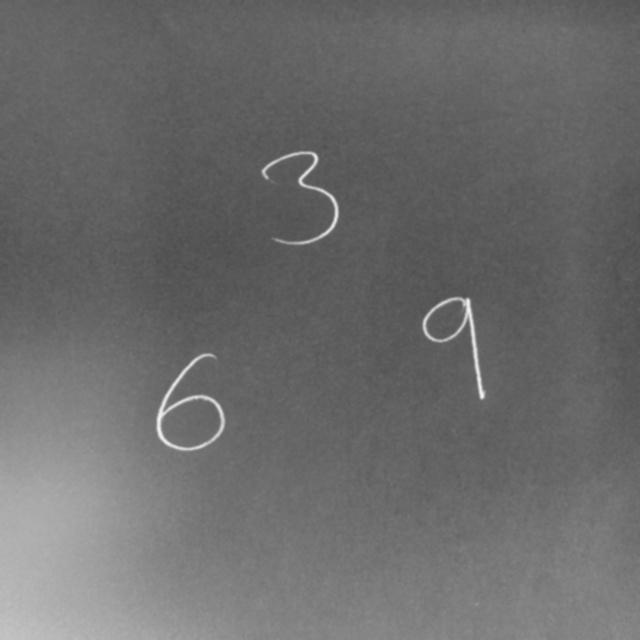 3
9
6